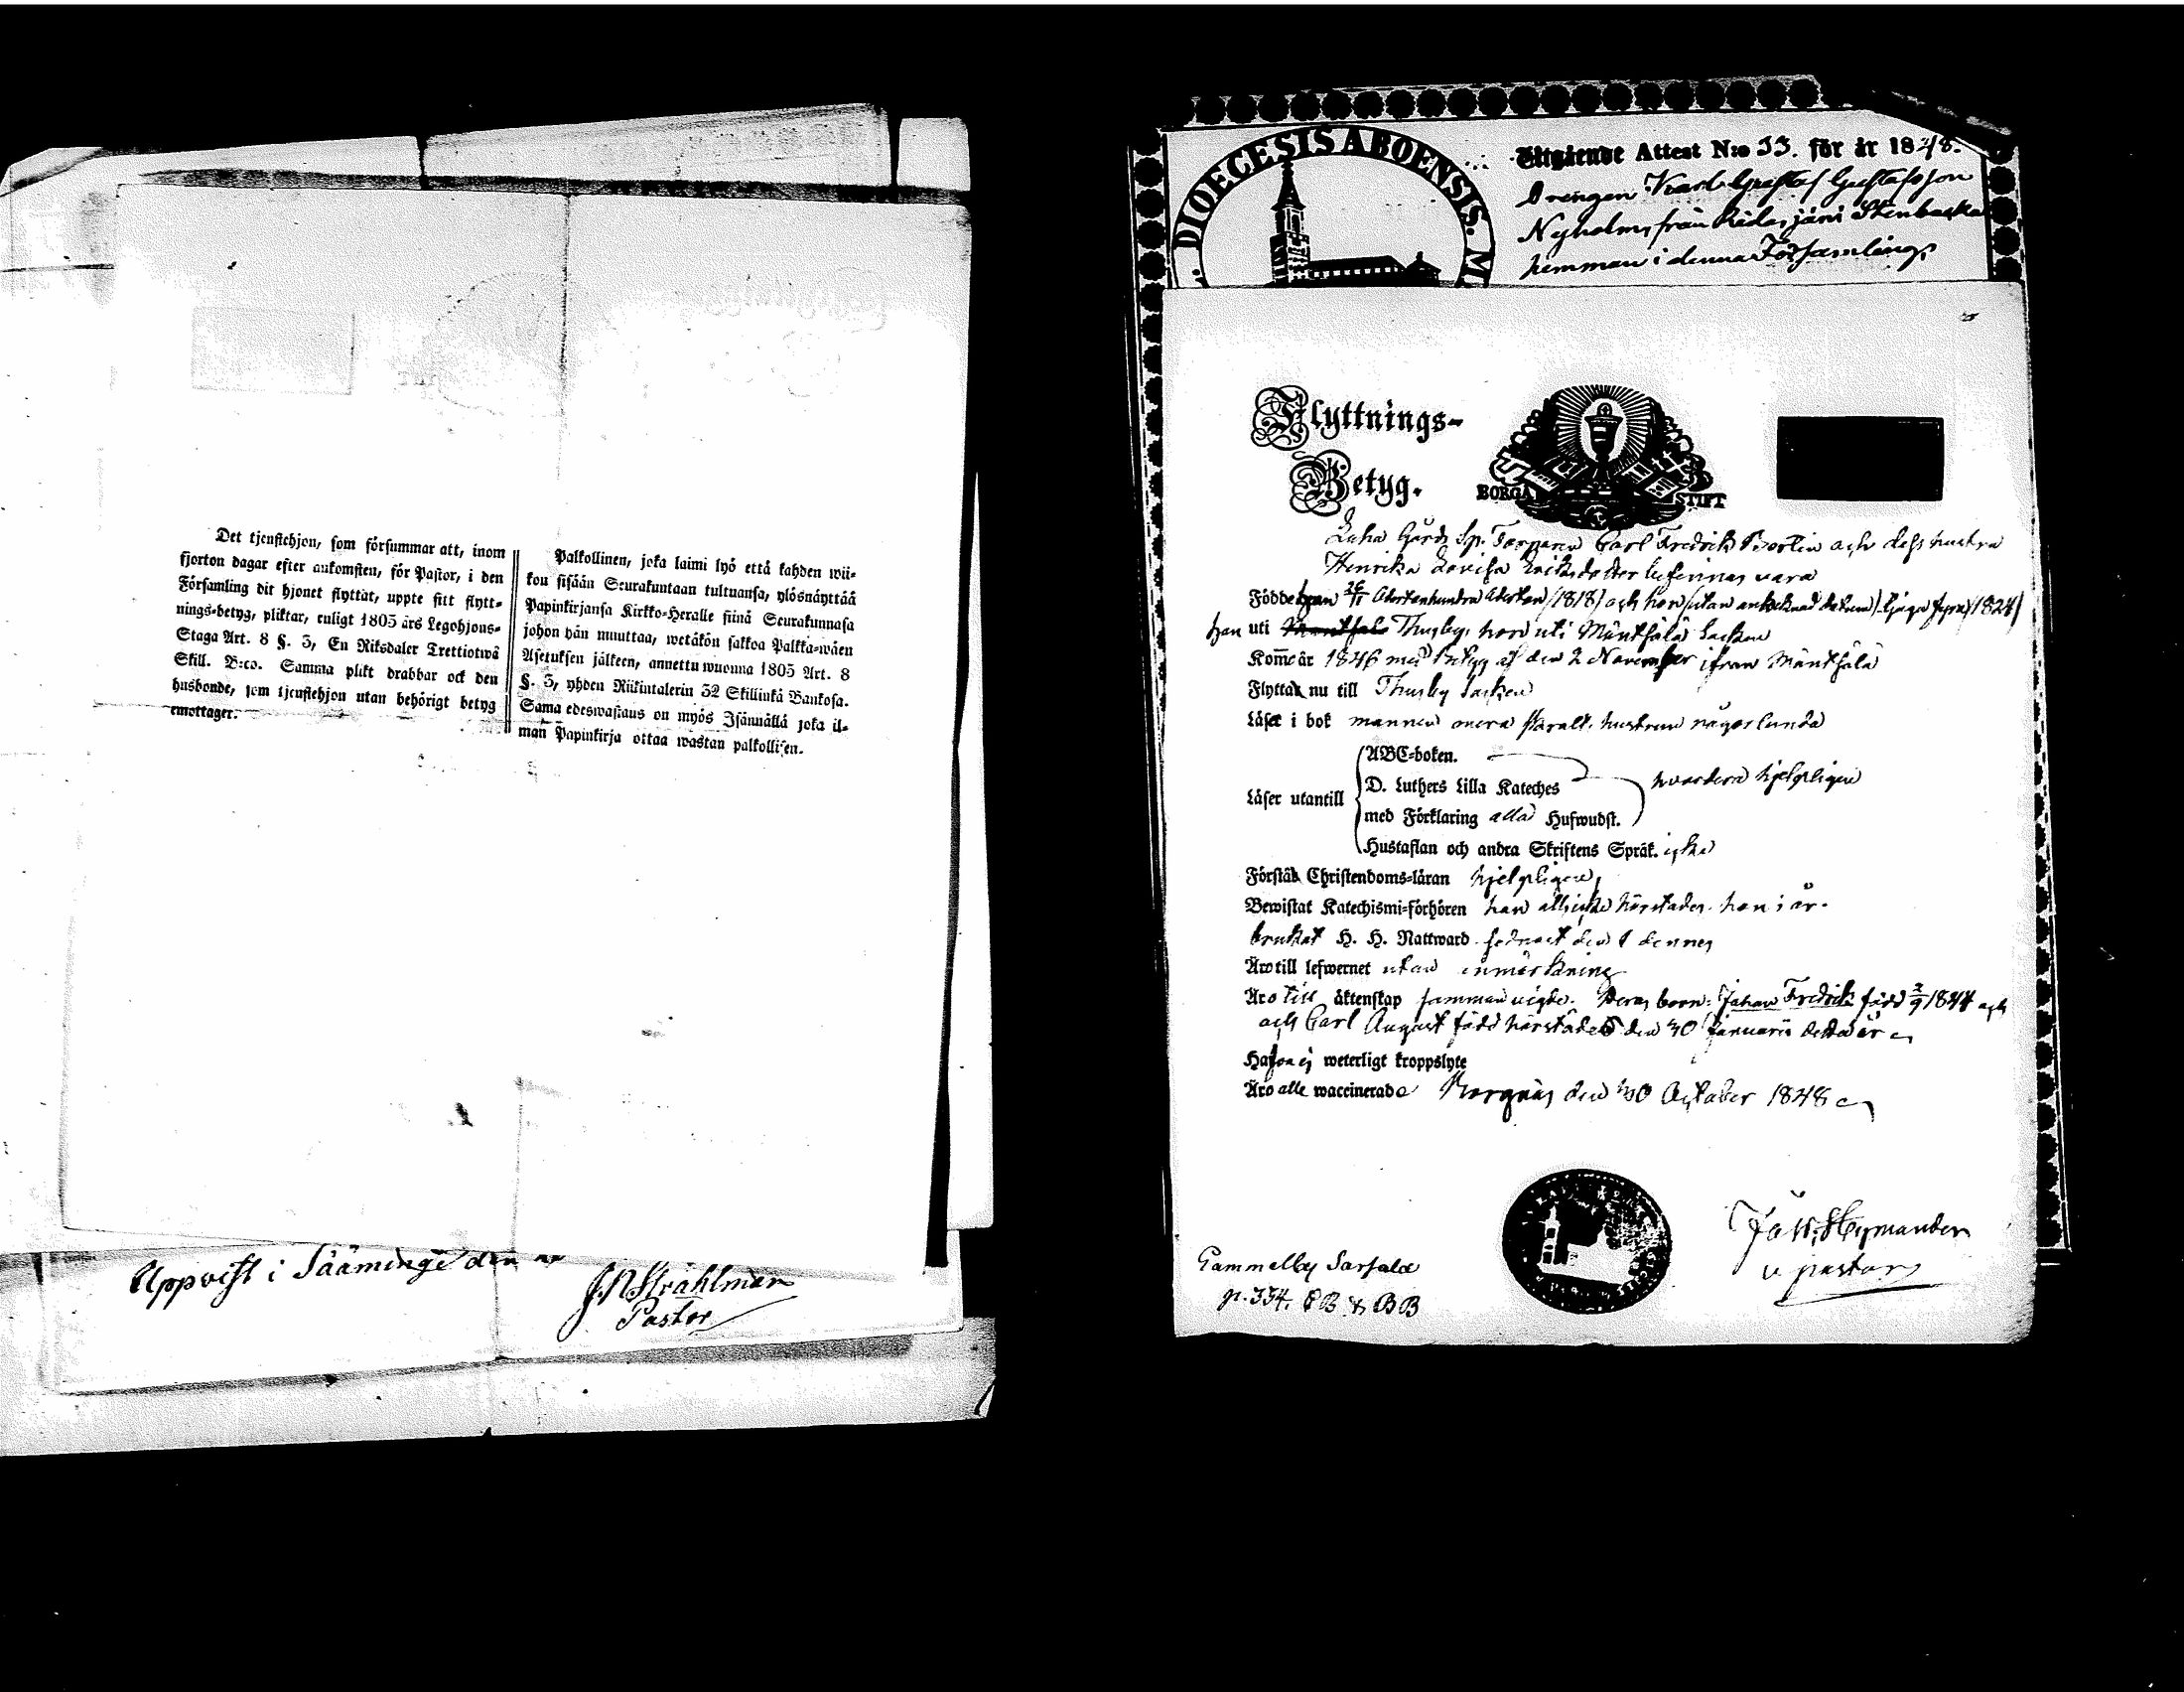 Det tjenstehjon, som försummar att, inom
fjorton dagar efter ankomsten, för Pastor, i den
Församling dit hjonet flyttat, uppte sitt flytt-
nings-betyg, pliktar, enligt 1805 års Legohjons-
Staga Art. 8 §. 3, En Riksdaler Trettiotwå
Skill. B:co. Samma plikt drabbar ock den
husbonde, som tjenstehjon utan behörigt betyg
emottager.
Palkollinen, joka laimi lyö että kahden wii-
kou sisään Seurakuntaan tultuansa, ylösnäyttää
Papinkirjansa Kirkko-Heralle siinä Seurakunnasa
johon hän muuttaa, wetäkön sakkoa Palkka-wäen
Asetuksen jälkeen, annettu wuonna 1805 Art. 8
§. 3, yhden Riikintalerin 32 Skillinkä Bankosa.
Sama edeswastaus on myös Isännällä joka il-
man Papinkirja ottaa wastan palkollisen.
Uppvist i Sääminge den
J.N. Stråhlman
Pastor
DIOECESIS ABOENSIS. M
Utgående Attest N:o 33. för år 1848.
Drengen Karl Gustaf Gustafsson
Nyholm, från Stenbacka
hemman i denna Församling,
Flyttnings-
Betyg.
BORGÅ STIFT
Gårds Sp. Torparen Carl Fredrik och dess hustru
Henrika Lovisa Eriksdotter befinnas vara
Födde han 26/1 Adertonhundra Aderton (1818) och hon (utan antecknad datum) tjugu fyra (1824)
han uti Thusby, hon uti Mäntsälä Socken
Kom̅e år 1846 med betyg af den 2 November ifrån Mäntsälä
Flytta nu till Thusby Socken
Läser i bok mannen hustrun någorlunda
ABC-boken.
Läser utantill D. Luthers Lilla Kateches hvardera hjelpligen
med Förklaring alla Hufwudst.
Hustaflan och andra Skriftens Språk. icke
Förstå Christendoms-läran hjelpligen,
Bewistat Katechismi-förhören han härstädes. hon i år.
brukat H. H. Nattward sednast den 1 dennes
Äro till lefwernet utan anmärkning
Äro till äktenskap sammanvigde. Deras barn: Johan Fredrik född 2/9 1844 och
och Carl August född härstädes den 30 Januarii detta år
Hafwa ej weterligt kroppslyte
Äro alle waccinerade Borgnäs den 30 October 1848
v. pastor,
Gammelby
p. 334. & BB